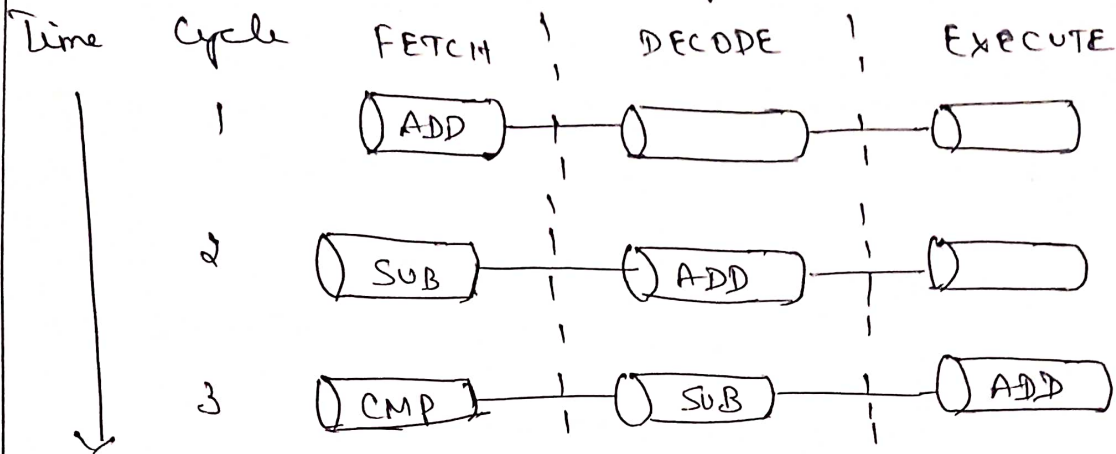 Time Cycle FETCH DECODE EXECUTE
1 ADD
2 SUB ADD
3 CMP SUB ADD